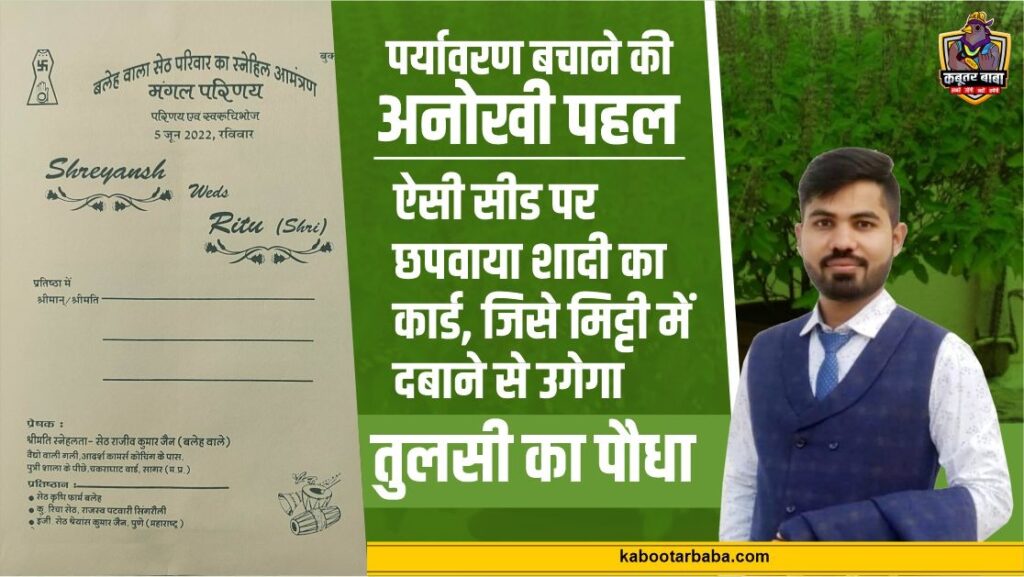 बुक
बलेह वाला सेठ परिवार का स्नेहिल आमंत्रण
मंगल परिणय
परिणय एवं स्वरुचिभोज
5 जून 2022, रविवार
Shreyansh
Weds
Ritu (Shri)
प्रतिष्ठा में
श्रीमान्/श्रीमति
प्रेषक :
श्रीमति स्नेहलता- सेठ राजीव कुमार जैन (बलेह वाले)
वैद्यो वाली गली, आदर्श कामर्स कोचिंग के पास,
पुत्री शाला के पीछे, चकराघाट वार्ड, सागर (म.प्र.)
प्रतिष्ठान :
सेठ कृषि फार्म बलेह
कु. रिचा सेठ, राजस्व पटवारी सिंगरौली
इंजी. सेठ श्रेयांस कुमार जैन, पुणे (महाराष्ट्र)
पर्यावरण बचाने की
अनोखी पहल
ऐसी सीड पर
छपवाया शादी का
कार्ड, जिसे मिट्टी में
दबाने से उगेगा
तुलसी का पौधा
कबूतर बाबा
kabootarbaba.com